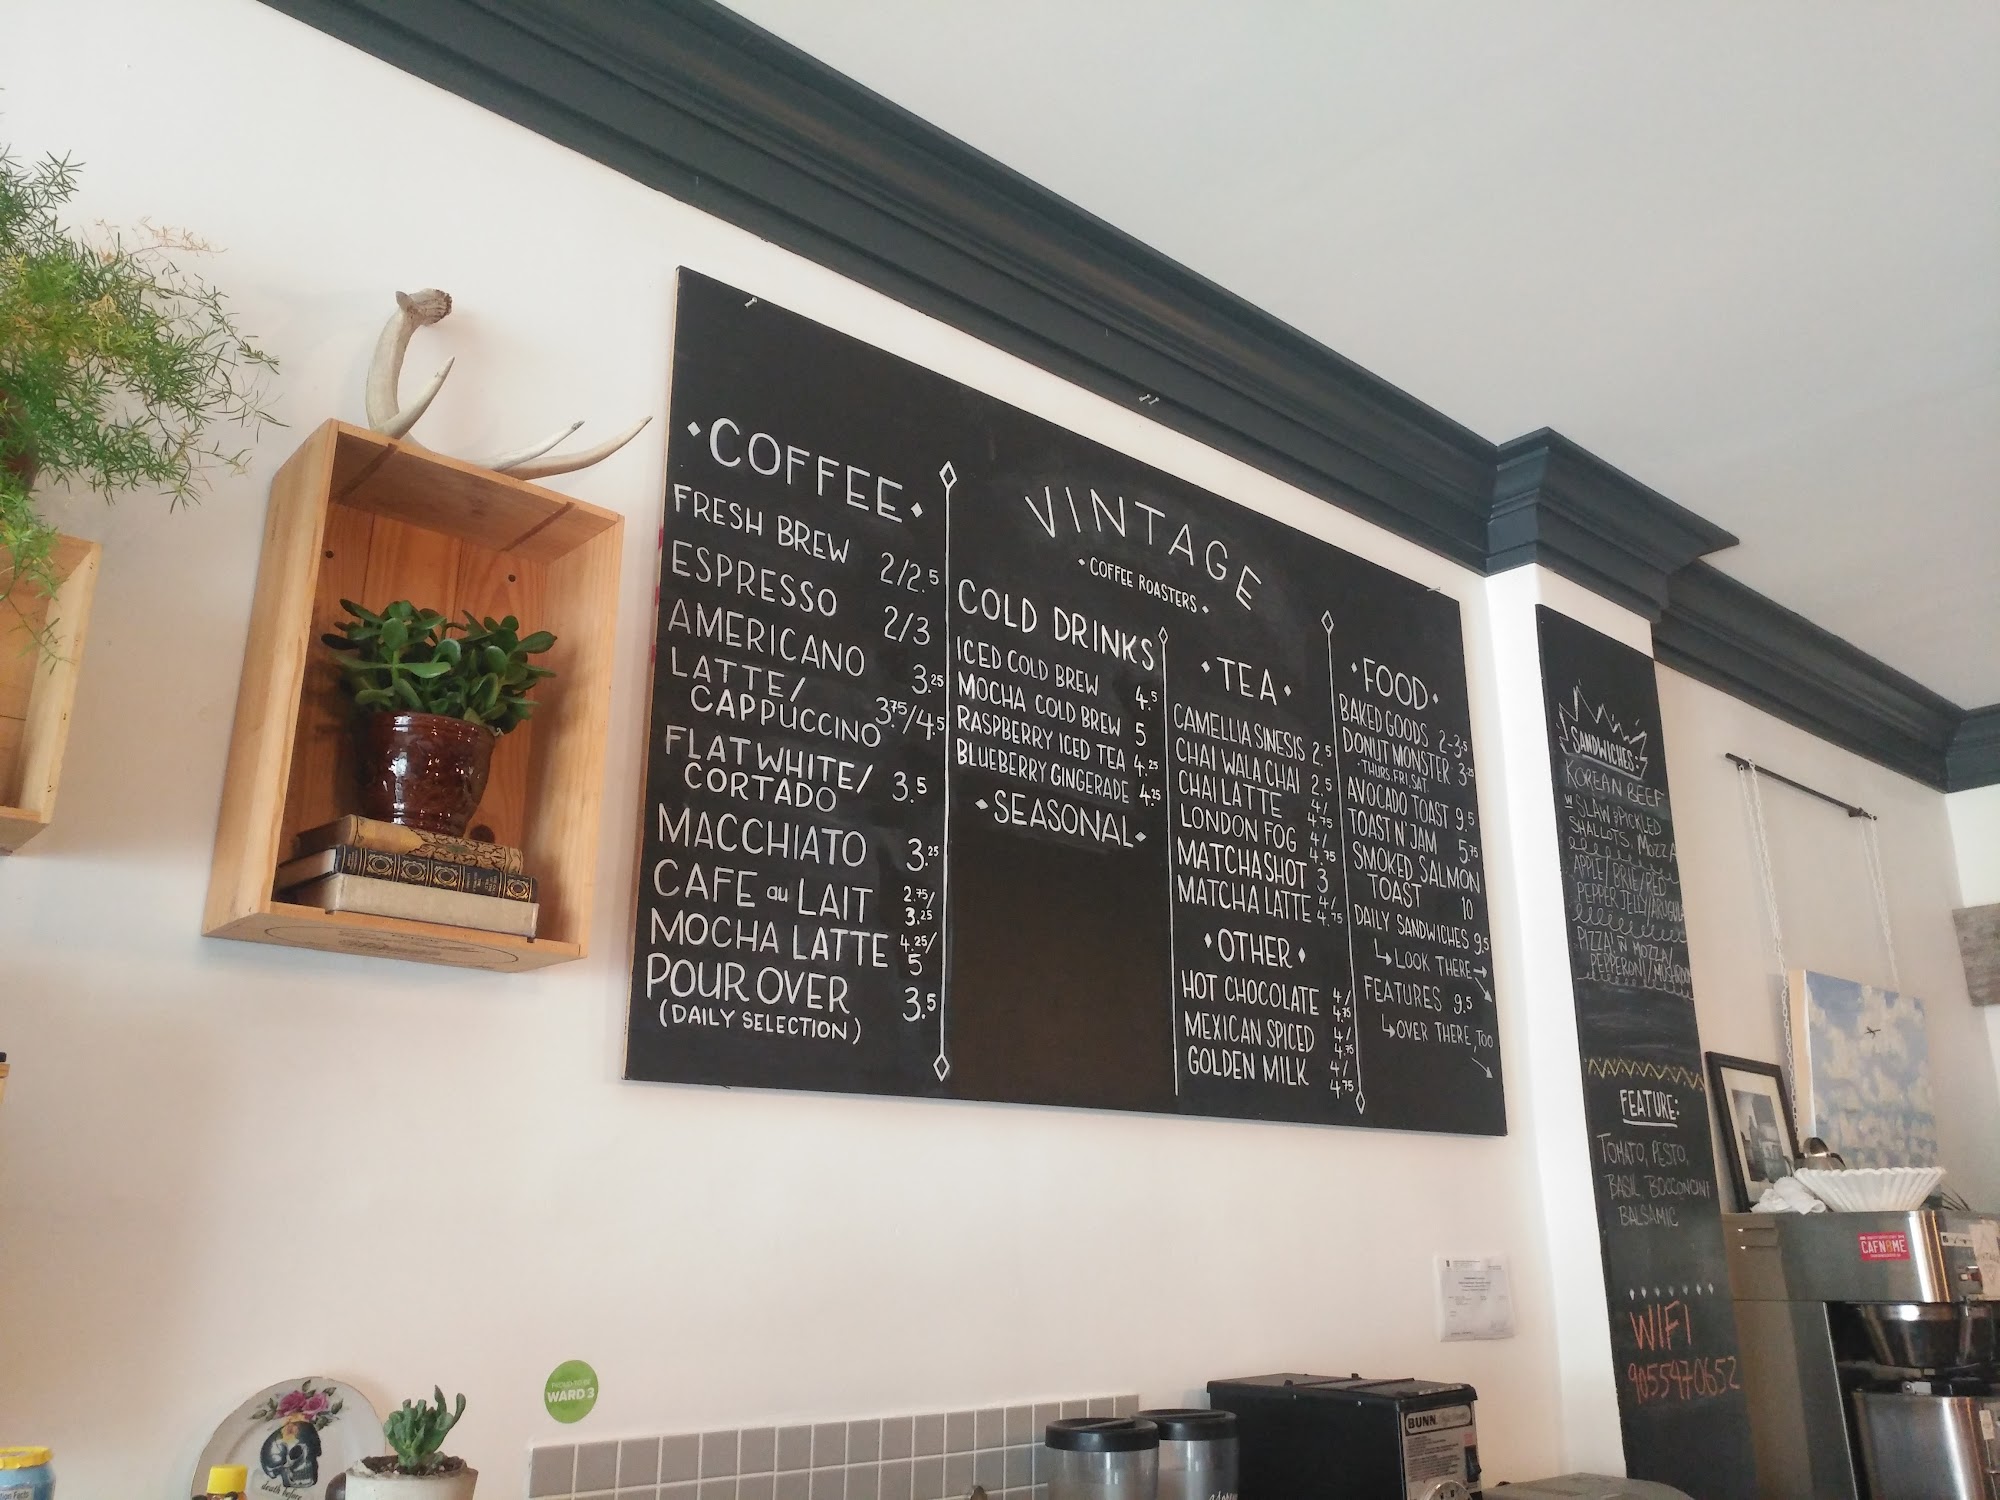 COFFEE
FRESH BREW 2/2.5
ESPRESSO 2/3
AMERICANO 3.25
LATTE/
CAPPUCCINO 3.75/4.5
FLAT WHITE/
CORTADO 3.5
MACCHIATO 3.25
CAFE au LAIT 2.75/
3.25
MOCHA LATTE 4.25/
5
POUR OVER 3.5
(DAILY SELECTION)
VINTAGE
COFFEE ROASTERS
COLD DRINKS
ICED COLD BREW 4.5
MOCHA COLD BREW 5
RASPBERRY ICED TEA 4.25
BLUEBERRY GINGERADE 4.25
SEASONAL
TEA
CAMELLIA SINESIS 2.5
CHAI WALA CHAI 2.5
CHAI LATTE 4/
4.75
LONDON FOG 4/
4.75
MATCHA SHOT 3
MATCHA LATTE 4/
4.75
OTHER
HOT CHOCOLATE 4/
4.75
MEXICAN SPICED 4/
4.75
GOLDEN MILK 4/
4.75
FOOD
BAKED GOODS 2-3.5
DONUT MONSTER 3.25
THURS. FRI. SAT.
AVOCADO TOAST 9.5
TOAST N' JAM 5.75
SMOKED SALMON
TOAST 10
DAILY SANDWICHES 9.5
LOOK THERE
FEATURES 9.5
OVER THERE, TOO
SANDWICHES:
KOREAN BEEF
W SLAW PICKLED
SHALLOTS, MOZZA
APPLE/BRIE/RED
PEPPER JELLY/ARUGULA
PIZZA! MOZZA/
PEPPERONI/MUSHROOM
FEATURE:
TOMATO, PESTO,
BASIL, BOCCONCINI
BALSAMIC
WIFI
9055470652
CAFN8ME
BUNN
PROUD TO BE
WARD 3
death before